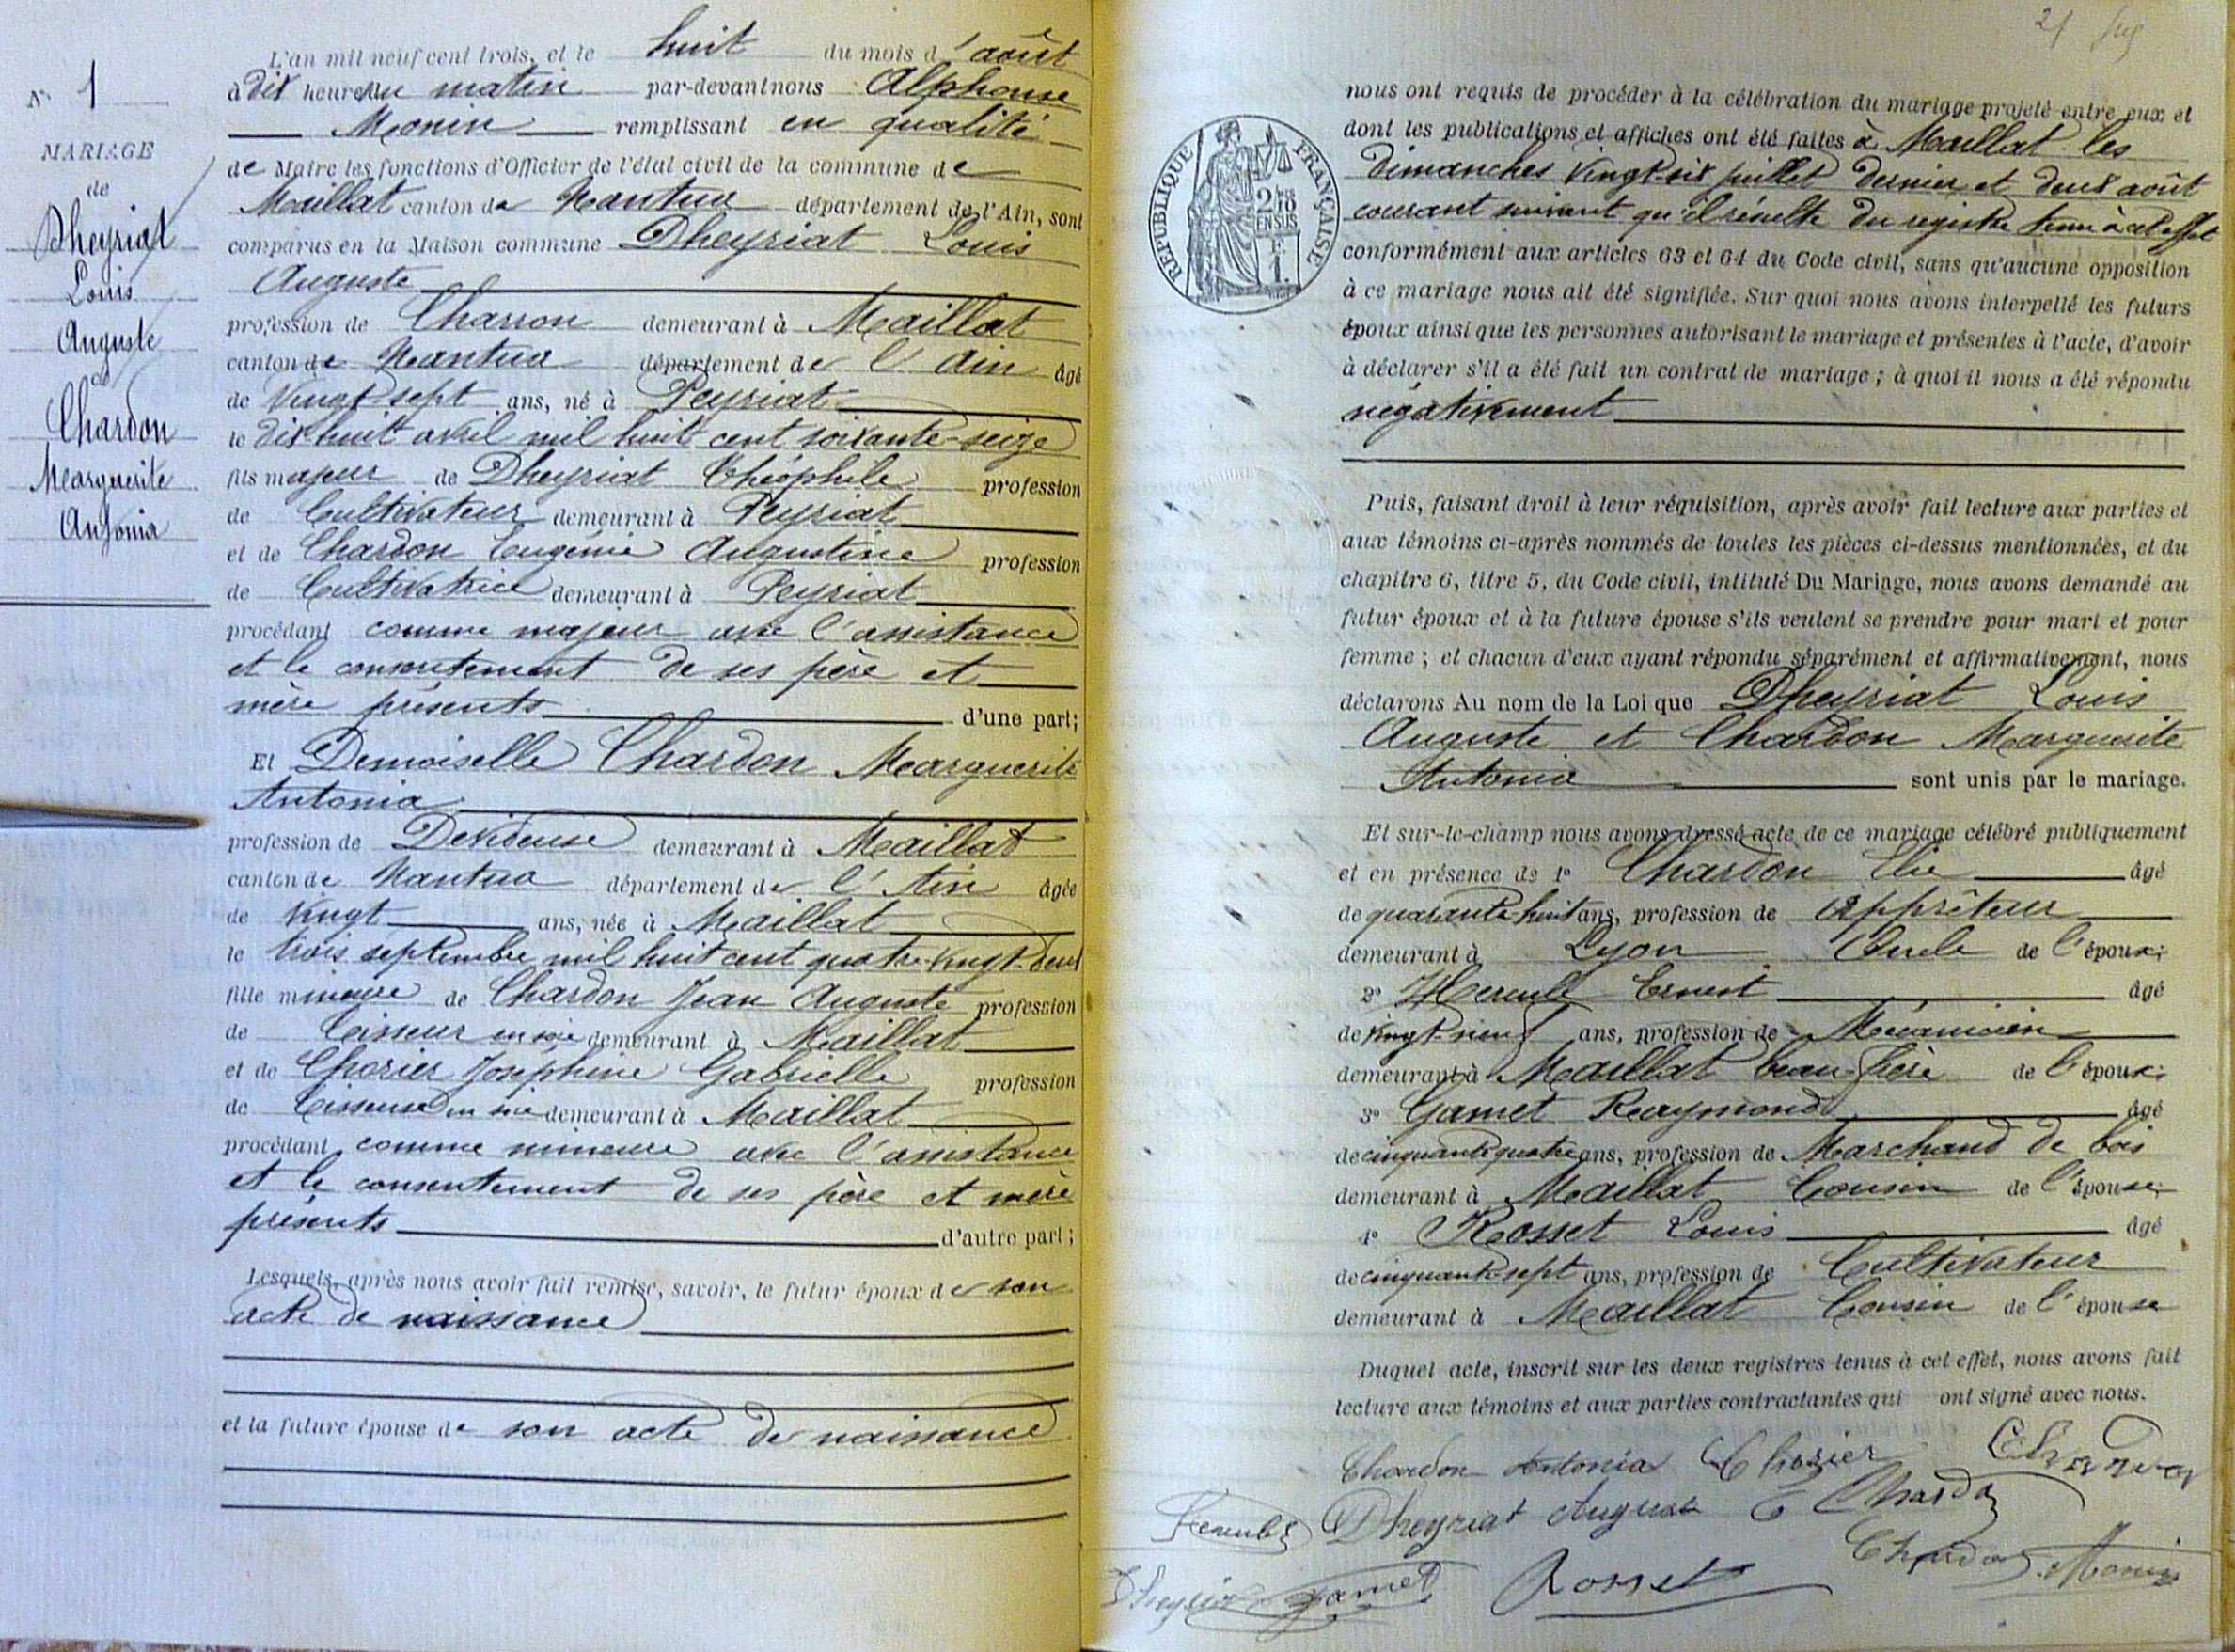 N° 1
MARIAGE
de
Dheyriat
Louis
Auguste
et
Chardon
Marguerite
Antonia
L'an mil neuf cent trois, et le huit du mois d'août
à dix heures du matin par-devant nous Alphonse
Monin remplissant en qualité
de Maire les fonctions d'Officier de l'état civil de la commune de
Maillat canton de Nantua département de l'Ain, sont
comparus en la Maison commune Dheyriat Louis
Auguste
profession de Charron demeurant à Maillat
canton de Nantua département de l'Ain âgé
de Vingt-sept ans, né à Peyriat
le dix huit avril mil huit cent soixante-seize
fils majeur de Dheyriat Théophile profession
de Cultivateur demeurant à Peyriat
et de Chardon Eugénie Augustine profession
de Cultivatrice demeurant à Peyriat
procédant comme majeur avec l'assistance
et le consentement de ses père et
mère présents d'une part;
Et Demoiselle Chardon Marguerite
Antonia
profession de Dévideuse demeurant à Maillat
canton de Nantua département de l'Ain âgée
de Vingt ans, née à Maillat
le trois septembre mil huit cent quatre-vingt-deux
fille mineure de Chardon Jean Auguste profession
de Tisseur en soie demeurant à Maillat
et de Chorier Joséphine Gabrielle profession
de Tisseuse en soie demeurant à Maillat
procédant comme mineure avec l'assistance
et le consentement de ses père et mère
présents d'autre part;
Lesquels, après nous avoir fait remise, savoir, le futur époux de son
acte de naissance
et la future épouse de son acte de naissance
21
RÉPUBLIQUE FRANÇAISE
2/10 EN SUS
1 F.
nous ont requis de procéder à la célébration du mariage projeté entre eux et
dont les publications et affiches ont été faites à Maillat les
dimanches vingt-six juillet dernier et deux août
courant suivant qu'il résulte du registre tenu à cet effet
conformément aux articles 63 et 64 du Code civil, sans qu'aucune opposition
à ce mariage nous ait été signifiée. Sur quoi nous avons interpellé les futurs
époux ainsi que les personnes autorisant le mariage et présentes à l'acte, d'avoir
à déclarer s'il a été fait un contrat de mariage; à quoi il nous a été répondu
négativement
Puis, faisant droit à leur réquisition, après avoir fait lecture aux parties et
aux témoins ci-après nommés de toutes les pièces ci-dessus mentionnées, et du
chapitre 6, titre 5, du Code civil, intitulé Du Mariage, nous avons demandé au
futur époux et à la future épouse s'ils veulent se prendre pour mari et pour
femme; et chacun d'eux ayant répondu séparément et affirmativement, nous
déclarons Au nom de la Loi que Dheyriat Louis
Auguste et Chardon Marguerite
Antonia sont unis par le mariage.
Et sur-le-champ nous avons dressé acte de ce mariage célébré publiquement
et en présence de 1° Chardon Elie âgé
de quarante-huit ans, profession de Apprêteur
demeurant à Lyon Oncle de l'époux;
2° Hercule Ernest âgé
de vingt-neuf ans, profession de Mécanicien
demeurant à Maillat beau-frère de l'époux;
3° Gamet Raymond âgé
de cinquante quatre ans, profession de Marchand de bois
demeurant à Maillat Cousin de l'épouse;
4° Rosset Louis âgé
de cinquante-sept ans, profession de Cultivateur
demeurant à Maillat Cousin de l'épouse
Duquel acte, inscrit sur les deux registres tenus à cet effet, nous avons fait
lecture aux témoins et aux parties contractantes qui ont signé avec nous.
Chardon Antonia Chorier
Dheyriat Auguste E Chardon
Chardon Monin
Dheyriat Gamet Rosset